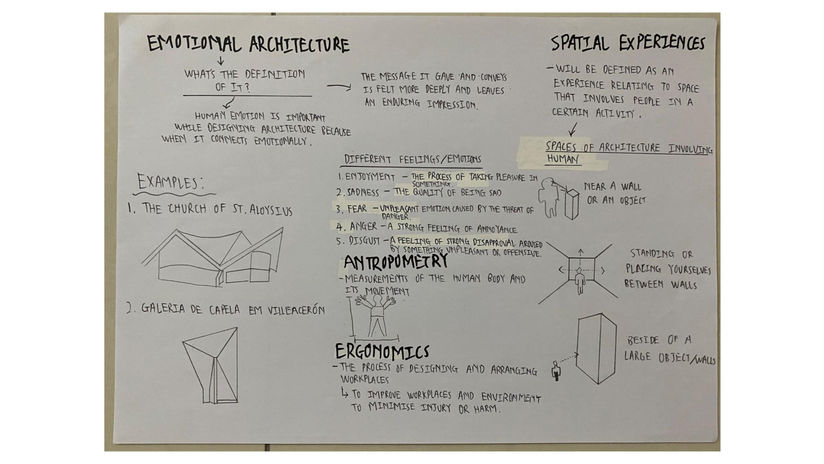 EMOTIONAL ARCHITECTURE
WHAT'S THE DEFINITION
OF IT?
THE MESSAGE IT GAVE AND CONVEYS
IS FELT MORE DEEPLY AND LEAVES
AN ENDURING IMPRESSION.
HUMAN EMOTION IS IMPORTANT
WHILE DESIGNING ARCHITECTURE BECAUSE
WHEN IT CONNECTS EMOTIONALLY.
EXAMPLES:
1. THE CHURCH OF ST. ALOYSIUS
2. GALERIA DE CAPELA EM VILLEACERÓN
DIFFERENT FEELINGS/EMOTIONS
1. ENJOYMENT - THE PROCESS OF TAKING PLEASURE IN
SOMETHING.
2. SADNESS - THE QUALITY OF BEING SAD
3. FEAR - UNPLEASANT EMOTION CAUSED BY THE THREAT OF
DANGER.
4. ANGER - A STRONG FEELING OF ANNOYANCE
5. DISGUST - A FEELING OF STRONG DISAPPROVAL AROUSED
BY SOMETHING UNPLEASANT OR OFFENSIVE.
ANTROPOMETRY
- MEASUREMENTS OF THE HUMAN BODY AND
ITS MOVEMENT
ERGONOMICS
- THE PROCESS OF DESIGNING AND ARRANGING
WORKPLACES
↳ TO IMPROVE WORKPLACES AND ENVIRONMENT
TO MINIMISE INJURY OR HARM.
SPATIAL EXPERIENCES
- WILL BE DEFINED AS AN
EXPERIENCE RELATING TO SPACE
THAT INVOLVES PEOPLE IN A
CERTAIN ACTIVITY.
SPACES OF ARCHITECTURE INVOLVING
HUMAN
NEAR A WALL
OR AN OBJECT
STANDING OR
PLACING YOURSELVES
BETWEEN WALLS
BESIDE OF A
LARGE OBJECT/WALLS